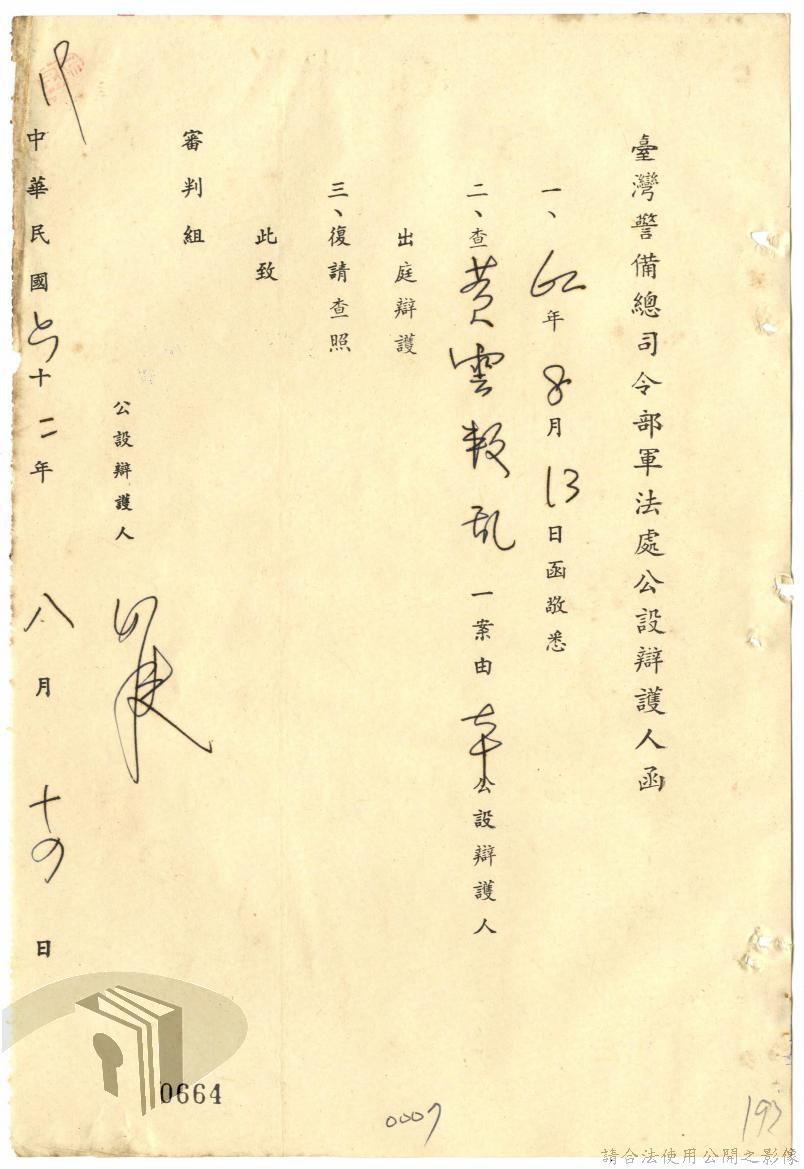 臺灣警備總司令部軍法處公設辯護人函
一、62年8月13日函敬悉
二、查黃雲叛乱一案由本公設辯護人
出庭辯護
三、復請查照
此致
審判組
公設辯護人
中華民國六十二年八月十四日
0664
0007
193
請合法使用公開之影像